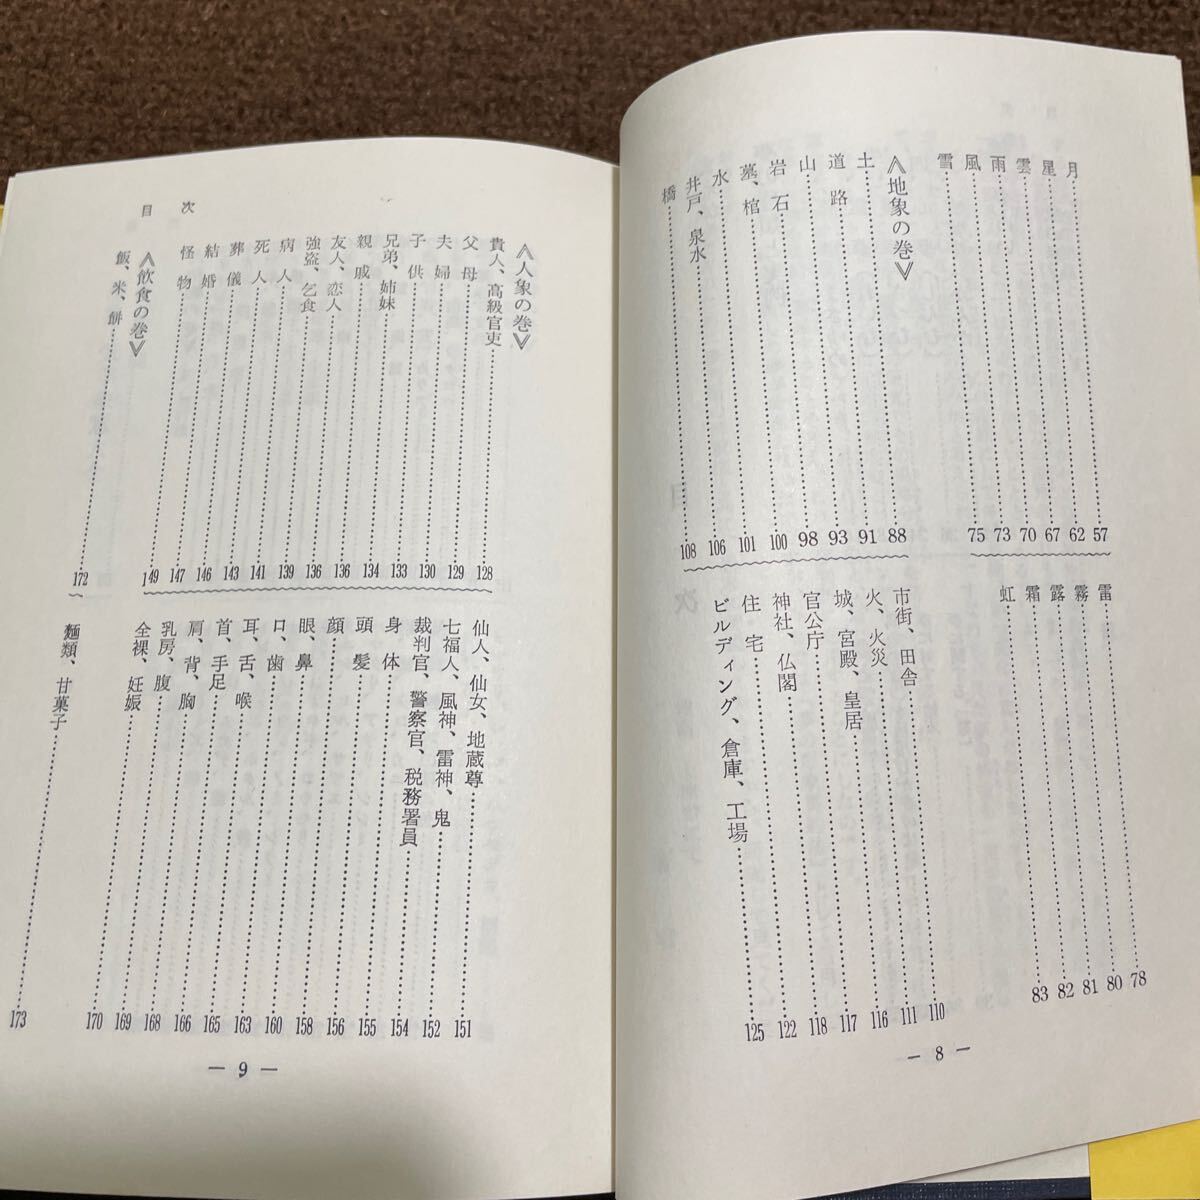 月……57
星……62
雲……67
雨……70
風……73
雪……75
雷……78
霧……80
露……81
霜……82
虹……83
《地象の巻》
土……88
道路……91
山……93
岩石……98
墓、棺……100
水……101
井戸、泉水……106
橋……108
市街、田舎……110
火、火災……111
城、宮殿、皇居……116
官公庁……117
神社、仏閣……118
住宅……122
ビルディング、倉庫、工場……125
— 8 —
目次
《人象の巻》
貴人、高級官吏……128
父母……129
夫婦……130
子供……133
兄弟、姉妹……134
親戚……136
友人、恋人……136
強盗、乞食……139
病人……141
死人……143
葬儀……146
結婚……147
怪物……149
仙人、仙女、地蔵尊……151
七福人、風神、雷神、鬼……152
裁判官、警察官、税務署員……154
身体……155
頭髪……156
顔……158
眼、鼻……160
口、歯……163
耳、舌、喉……165
首、手足……166
肩、背、胸……168
乳房、腹……169
全裸、妊娠……170
《飲食の巻》
飯、米、餅……172
麵類、甘菓子……173
— 9 —